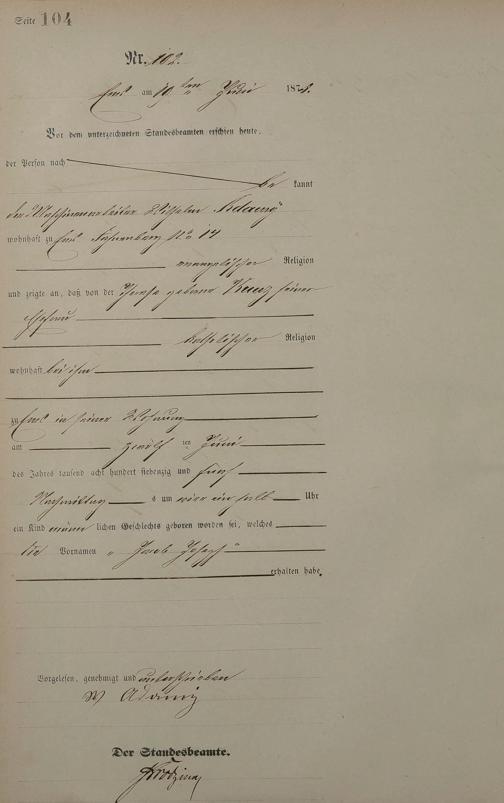 Seite 104
Nr. 102.
Ems am 19 ten Juni 187
Vor dem unterzeichneten Standesbeamten erschien heute,
der Person nach
be kannt
der Wilhelm Adamy
wohnhaft zu Ems No 14
evangelischer Religion
und zeigte an, daß von der geborne Kunz seiner
Ehefrau
katholischer Religion
wohnhaft bei ihm
zu Ems in seiner Wohnung
am zwölf ten Juni
des Jahres tausend acht hundert siebenzig und fünf
Nachmittag s um vier ein halb Uhr
ein Kind männ lichen Geschlechts geboren worden sei, welches
die Vornamen „Jacob Joseph“
erhalten habe.
Vorgelesen, genehmigt und unterschrieben
W Adamy
Der Standesbeamte.